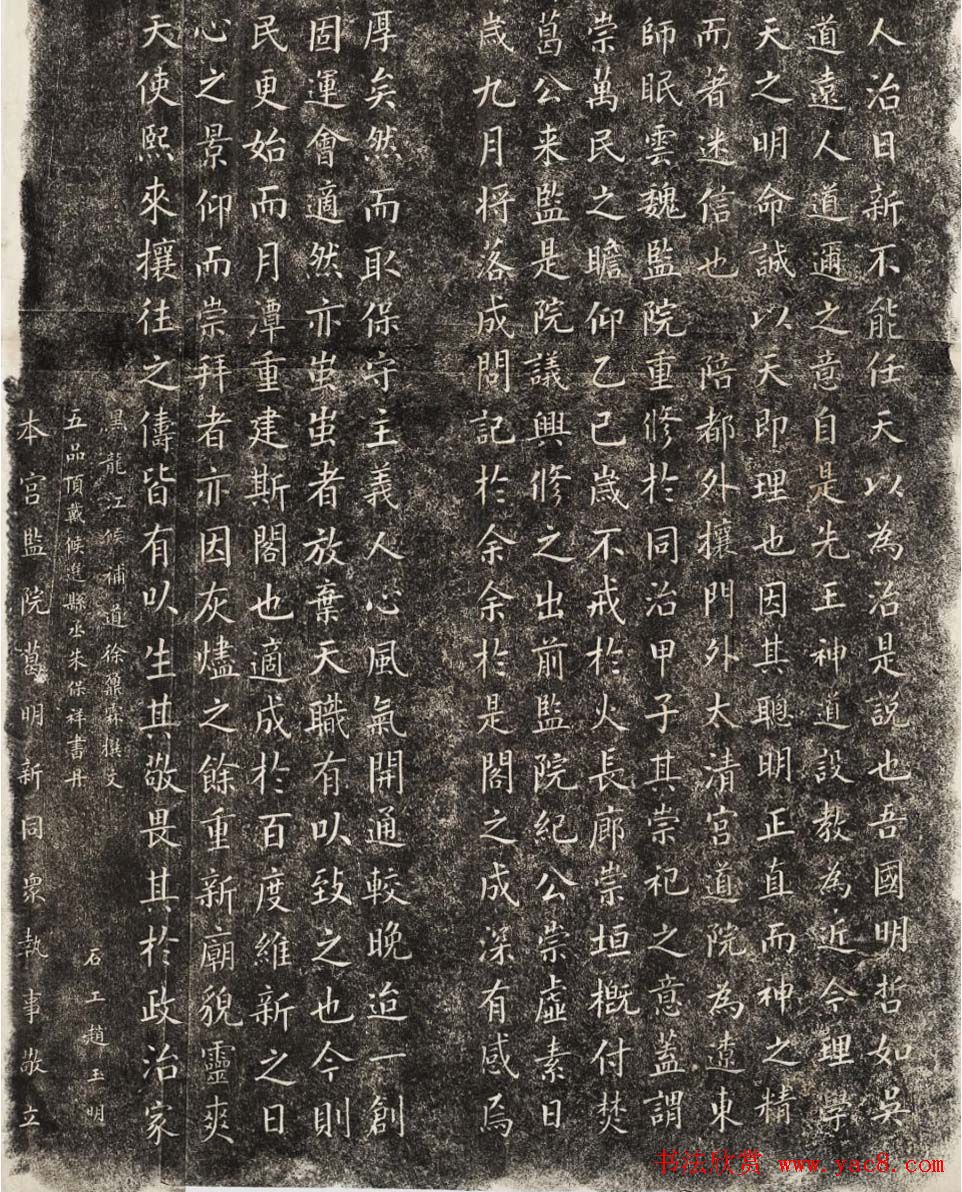 人治日新不能任天以為治是説也吾國明哲如吳
道遠人道邇之意自是先王神道設教為近今理學
天之明命誠以天即理也因其聰明正直而神之精
而著迷信也 陪都外攘門外太清宮道院為遼東
師眠雲魏監院重修於同治甲子其崇祀之意蓋謂
崇萬民之瞻仰乙巳歲不戒於火長廊崇垣概付焚
葛公来監是院議興修之出前監院紀公崇虛素日
歲九月将落成問記於余余於是閣之成深有感焉
厚矣然而取保守主義人心風氣開通較晚迨一創
固運會適然亦蚩蚩者放棄天職有以致之也今則
民更始而月潭重建斯閣也適成於百度維新之日
心之景仰而崇拜者亦因灰燼之餘重新廟貌靈爽
天使熙來攘往之儔皆有以生其敬畏其於政治家
黑龍江候補道徐鼐霖撰文
五品頂戴候選縣丞朱保祥書丹
石工趙玉明
本宮監院葛明新同眾執事敬立
书法欣赏 www.yac8.com